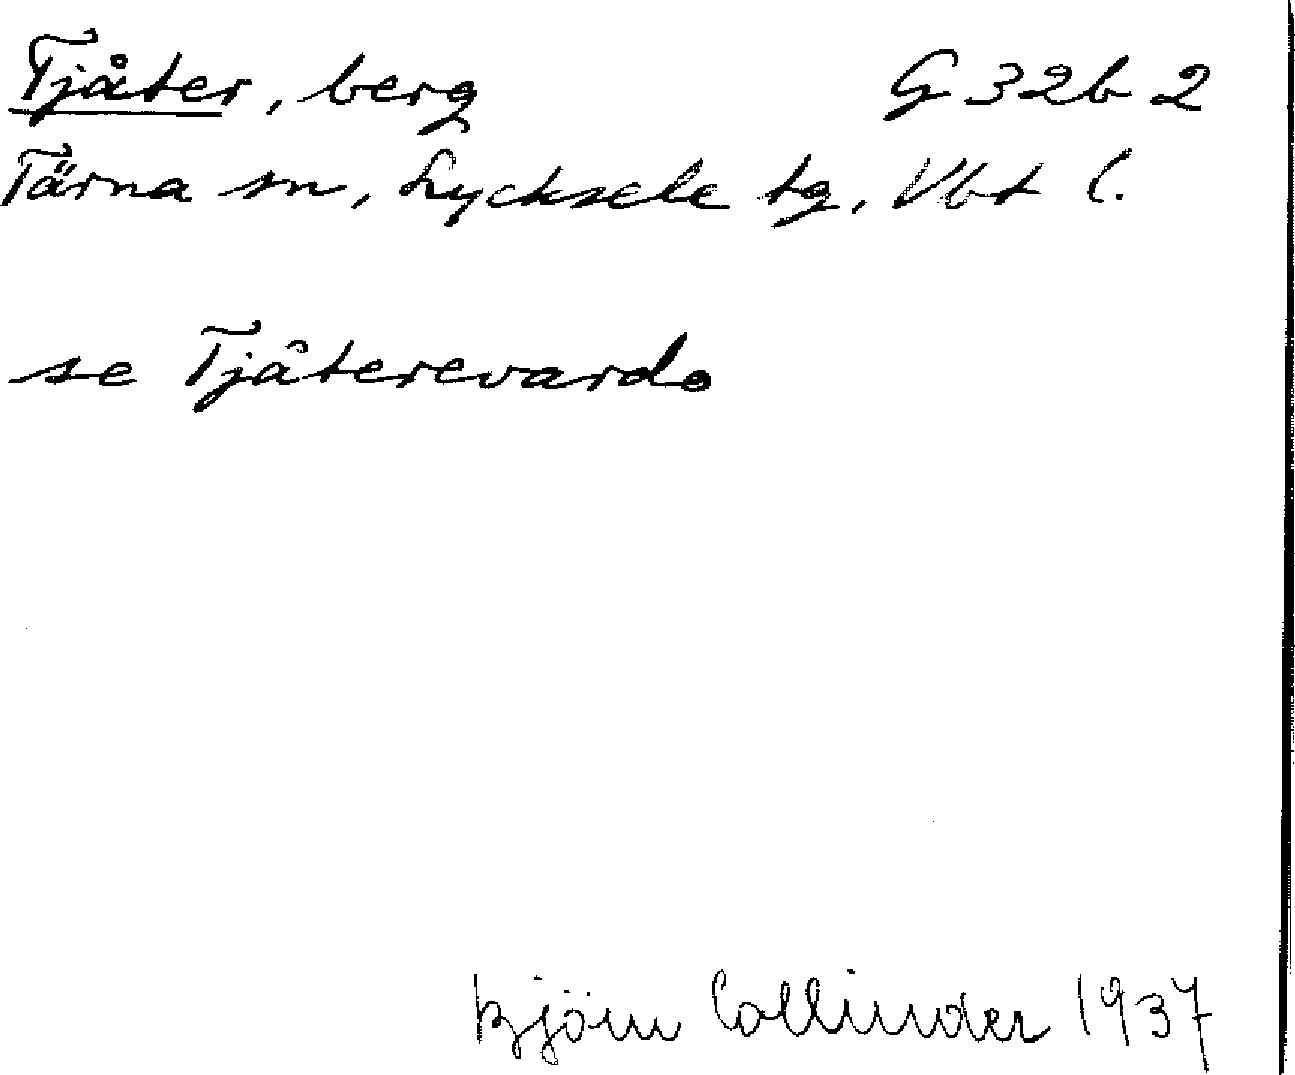 Tjåter, berg G 32b 2
Tärna sn, Lycksele tg, Vbt l.
se Tjåterevardo
Björn Collinder 1937